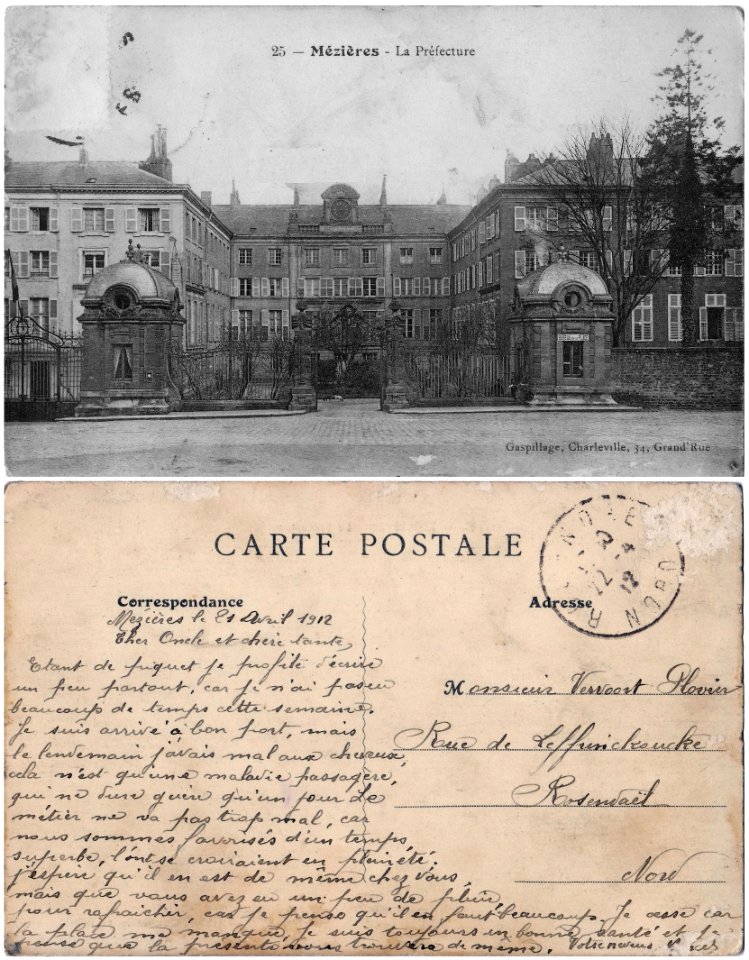 25 — Mézières - La Préfecture
Gaspillage, Charleville, 34, Grand'Rue
CARTE POSTALE
Correspondance
Adresse
22 - 4
12
Mézières le 21 Avril 1912
Cher Oncle et chère tante,
Etant de piquet je profite d'écrire
un peu partout, car je n'ai pas eu
beaucoup de temps cette semaine.
Je suis arrivé à bon port, mais
le lendemain j'avais mal aux cheveux,
cela n'est qu'une maladie passagère,
qui ne dure guère qu'un jour Le
métier ne va pas trop mal, car
nous sommes favorisés d'un temps
superbe, l'ont se croiraient en plein été.
j'espère qu'il en est de même chez vous,
mais que vous avez eu un peu de pluie,
pour rafraichir, car je pense qu'il en faut beaucoup. Je cesse car
la place me manque, je suis toujours en bonne santé et je
pense que la présente vous trouvera de même. Votre neveu
Monsieur Vervoort Plovier
Rue de Leffrinckoucke
Rosendaël
Nord